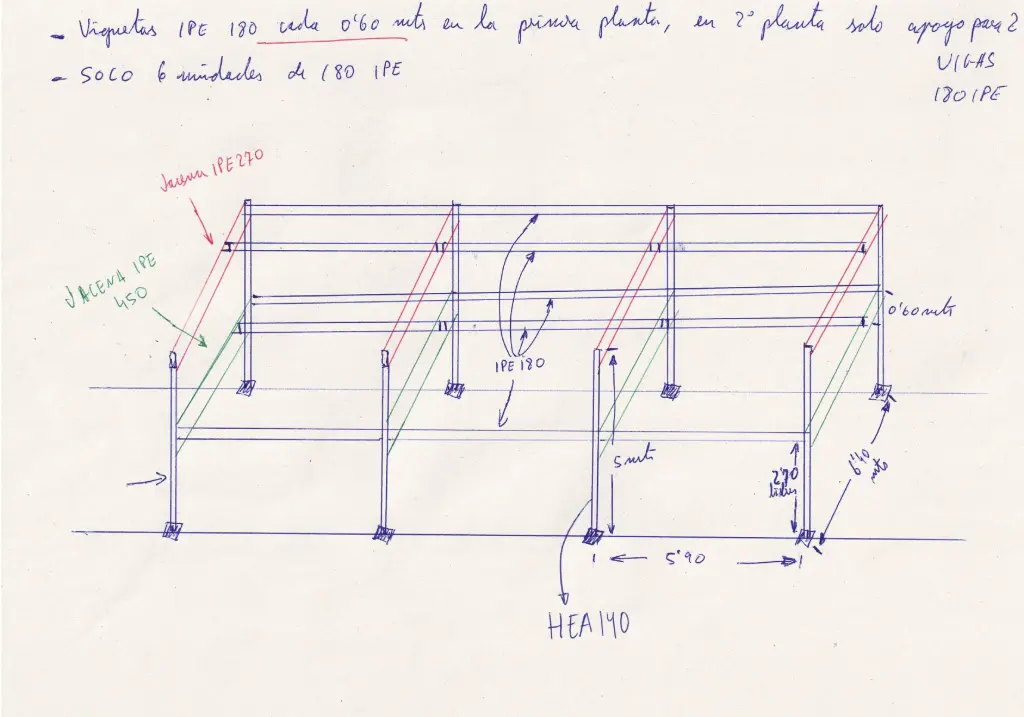 - Viguetas IPE 180 cada 0'60 mts en la primera planta, en 2ª planta solo apoyo para 2
VIGAS
180 IPE
- SOLO 6 unidades de 180 IPE
Jacena IPE 270
JACENA IPE
450
0'60 mts
IPE 180
5 mts
6'40
mts
5'90
HEA 140